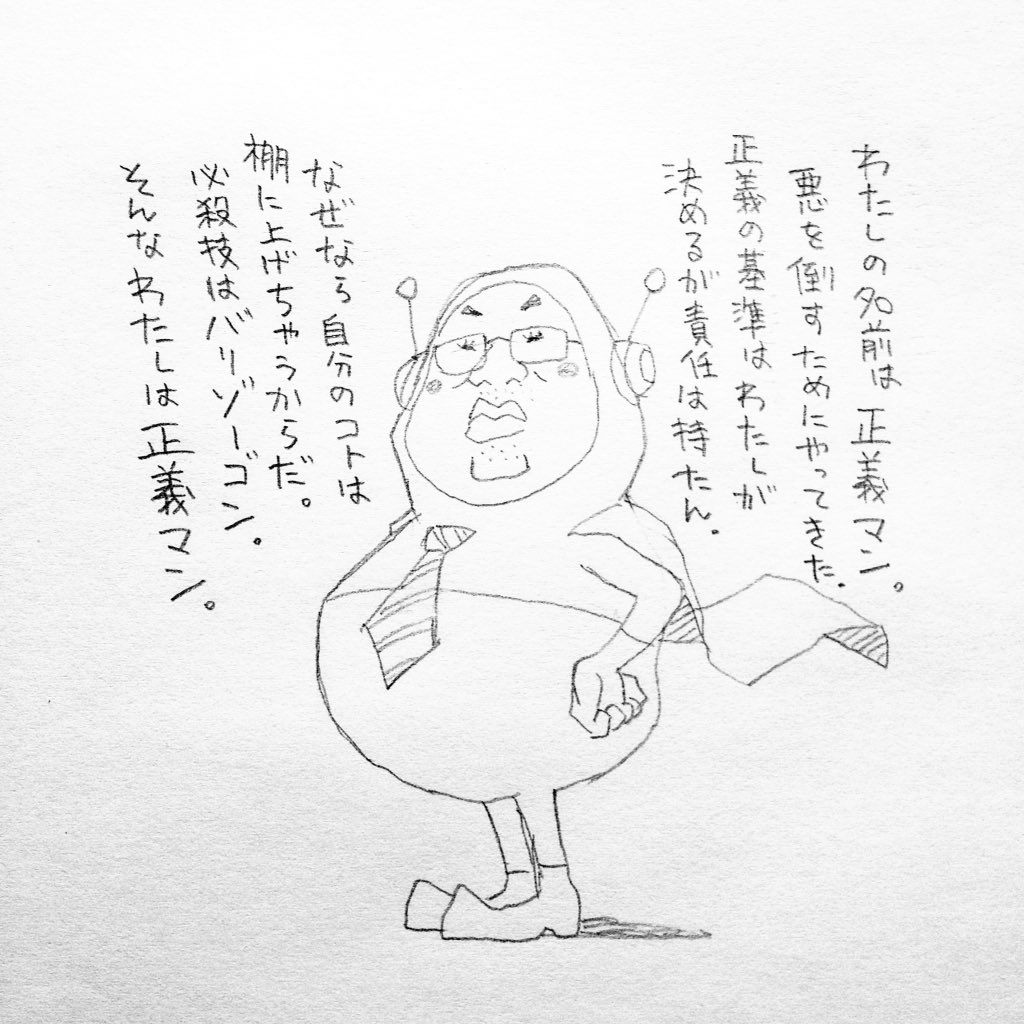 わたしの名前は正義マン。
悪を倒すためにやってきた.
正義の基準はわたしが
決めるが責任は持たん.
なぜなら自分のコトは
棚に上げちゃうからだ。
必殺技はバリゾーゴン.
そんなわたしは正義マン。